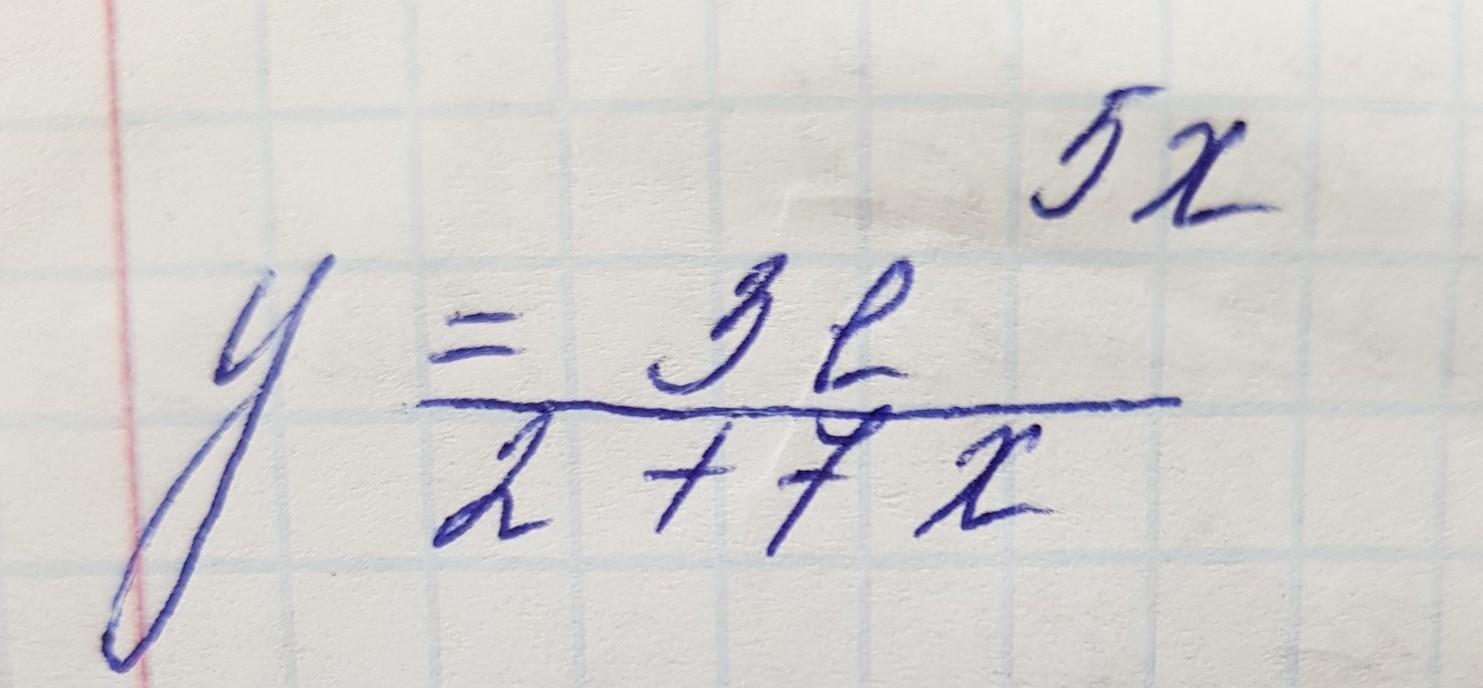 5x
y = 3e
2 + 7x